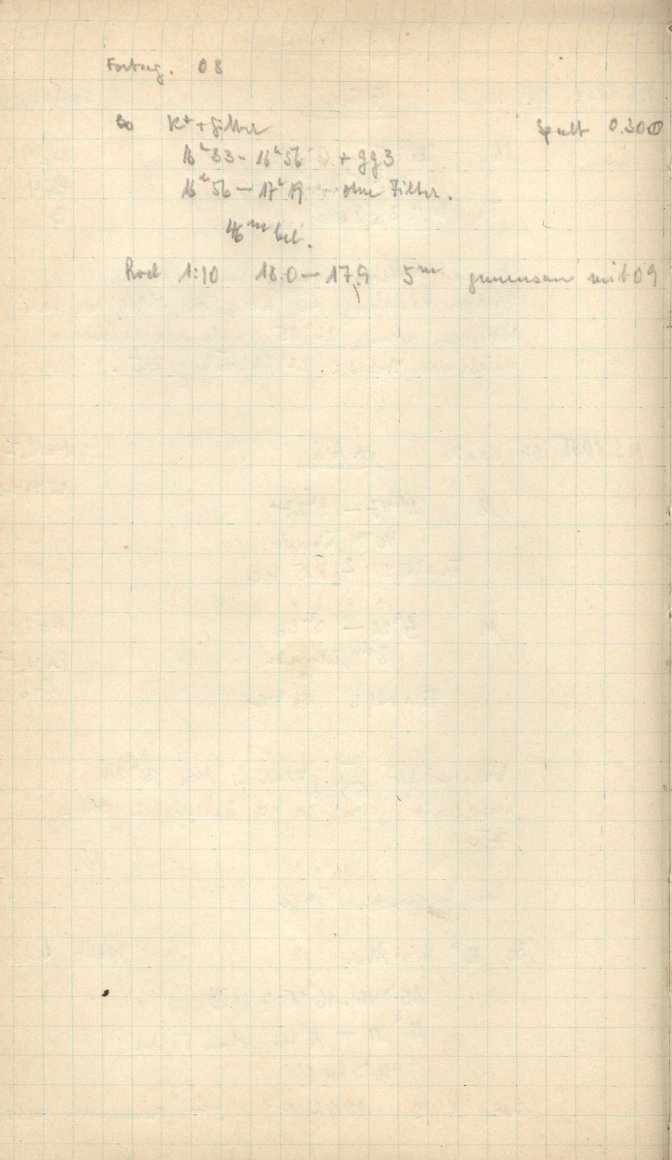 Fortseg. 08
30 K + Gitter Spalt 0.300
16ʰ33 - 16ʰ56 + gg3
16ʰ56 — 17ʰ19 ohne Filter.
46ᵐ bel.
Rod 1:10 18.0 — 17.9 5ᵐ gemeinsam mit 09